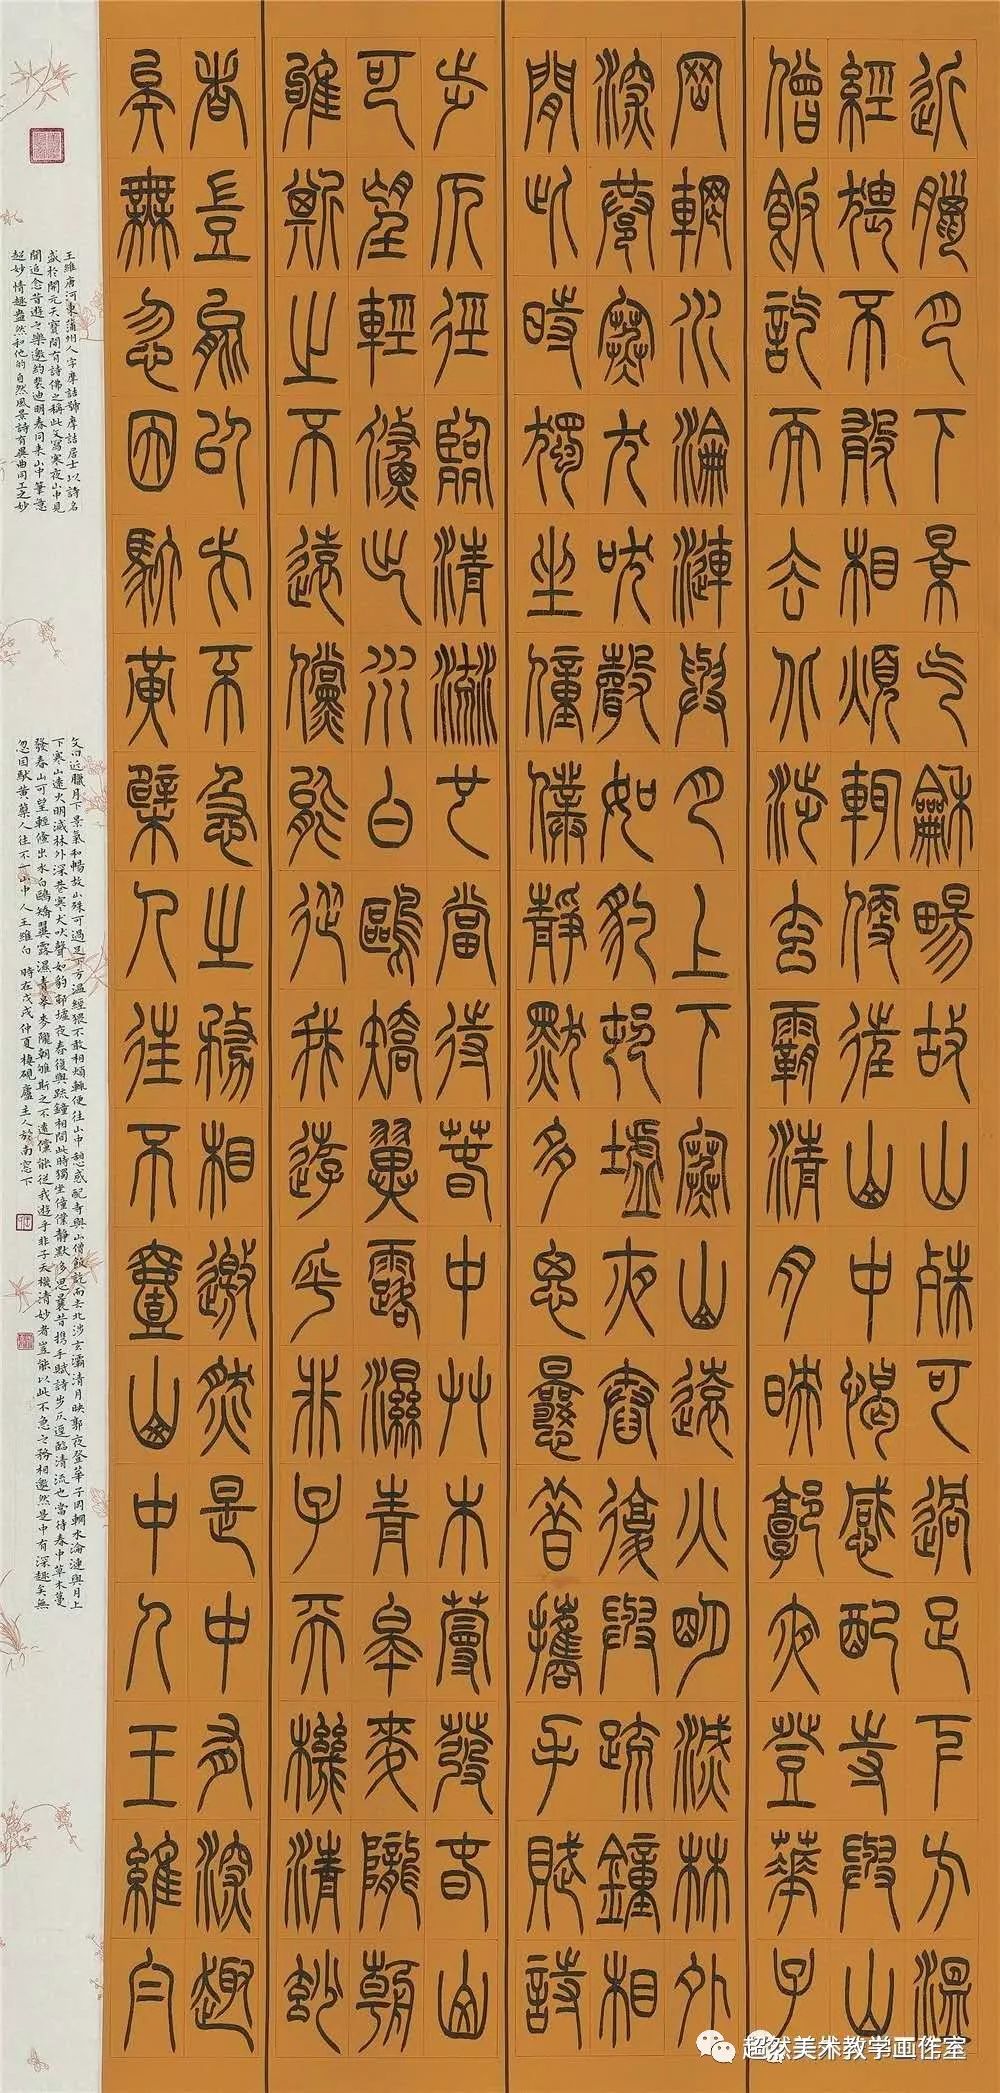 近臘月下景气龢暢故山殊可過足下方溫
經猥不敢相煩輒便往山中憩感配寺與山
僧飯訖而去北涉玄灞清月映郭夜登華子
岡輞水淪漣與月上下寒山遠火明滅林外
深巷寒犬吠聲如豹邨墟夜舂復與疏鐘相
閒此時獨坐僮僕靜默多思曩昔攜手賦詩
步仄徑臨清流也當待春中艸木蔓發春山
可望輕儵出水白鷗矯翼露濕青皋麥隴朝
雊斯之不遠儻能從我遊乎非子天機清妙
者豈能以此不急之務相邀然是中有深趣
矣無忽因馱黃檗人往不壹山中人王維白
王維唐河東蒲州人字摩詰號摩詰居士以詩名
盛於開元天寶間有詩佛之稱此文寫寒夜山中見
聞追念昔遊之樂邀約裴迪明春同來山中筆意
超妙情趣盎然和他的自然風景詩有異曲同工之妙
文曰近臘月下景氣和暢故山殊可過足下方溫經猥不敢相煩輒便往山中憩感配寺與山僧飯訖而去北涉玄灞清月映郭夜登華子岡輞水淪漣與月上
下寒山遠火明滅林外深巷寒犬吠聲如豹邨墟夜舂復與疏鐘相間此時獨坐僮僕靜默多思曩昔携手賦詩步仄逕臨清流也當待春中草木蔓
發春山可望輕鯈出水白鷗矯翼露濕青皋麥隴朝雊斯之不遠儻能從我遊乎非子天機清妙者豈能以此不急之務相邀然是中有深趣矣無
忽因馱黃蘗人往不一山中人王維白 時在戊戌仲夏棲硯廬主人於南窓下
超然美术教学画作室